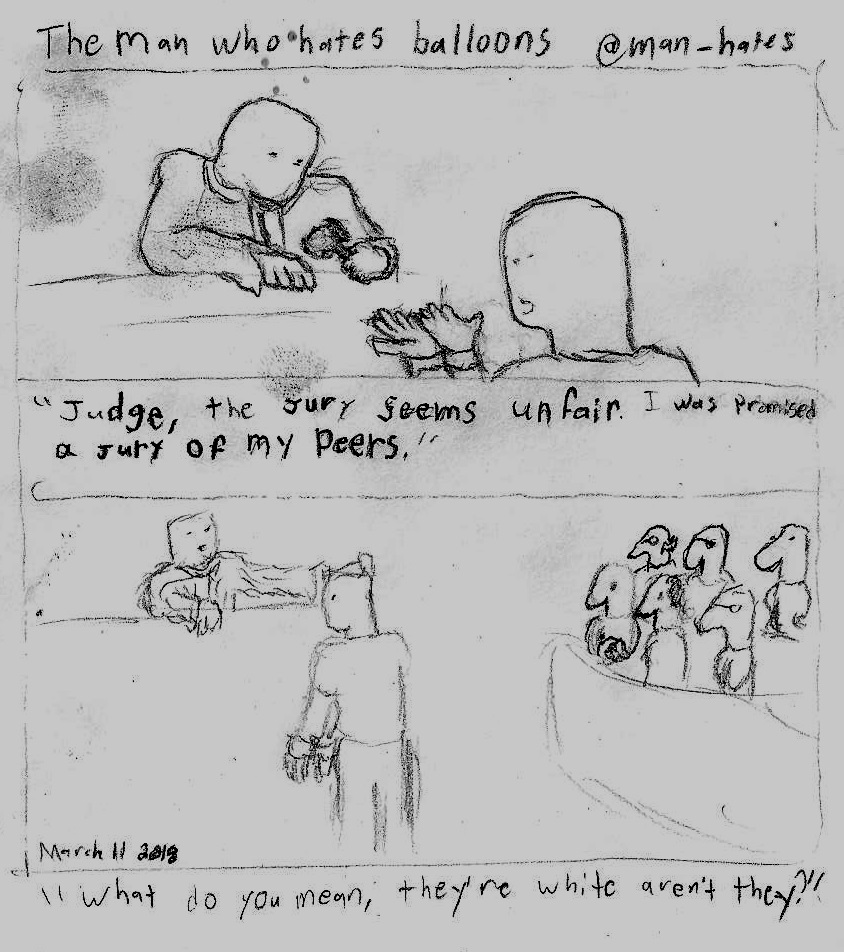 The man who hates balloons @man_hates
"Judge, the jury seems unfair. I was promised
a jury of my peers."
March 11 2018
"What do you mean, they're white aren't they?"